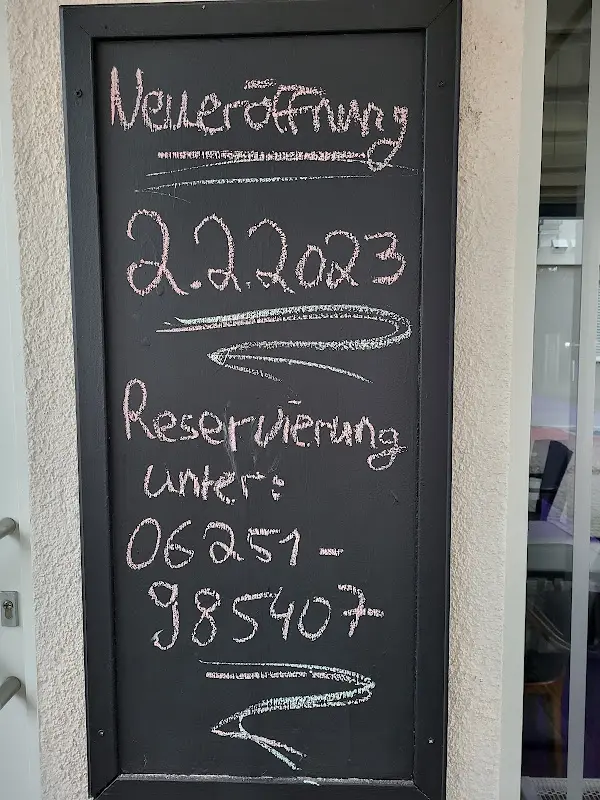 Neueröffnung
2.2.2023
Reservierung
unter:
06251-
985407